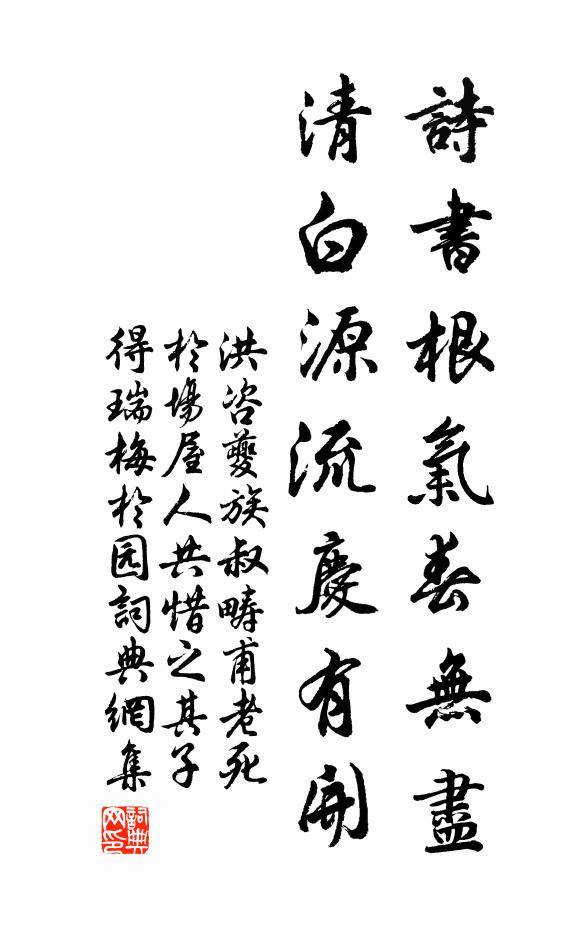 詩書根氣春無盡
清白源流慶有開
洪咨夔族叔疇甫老死
於場屋人共惜之其子
得瑞梅於园詞典網集
詞典网印